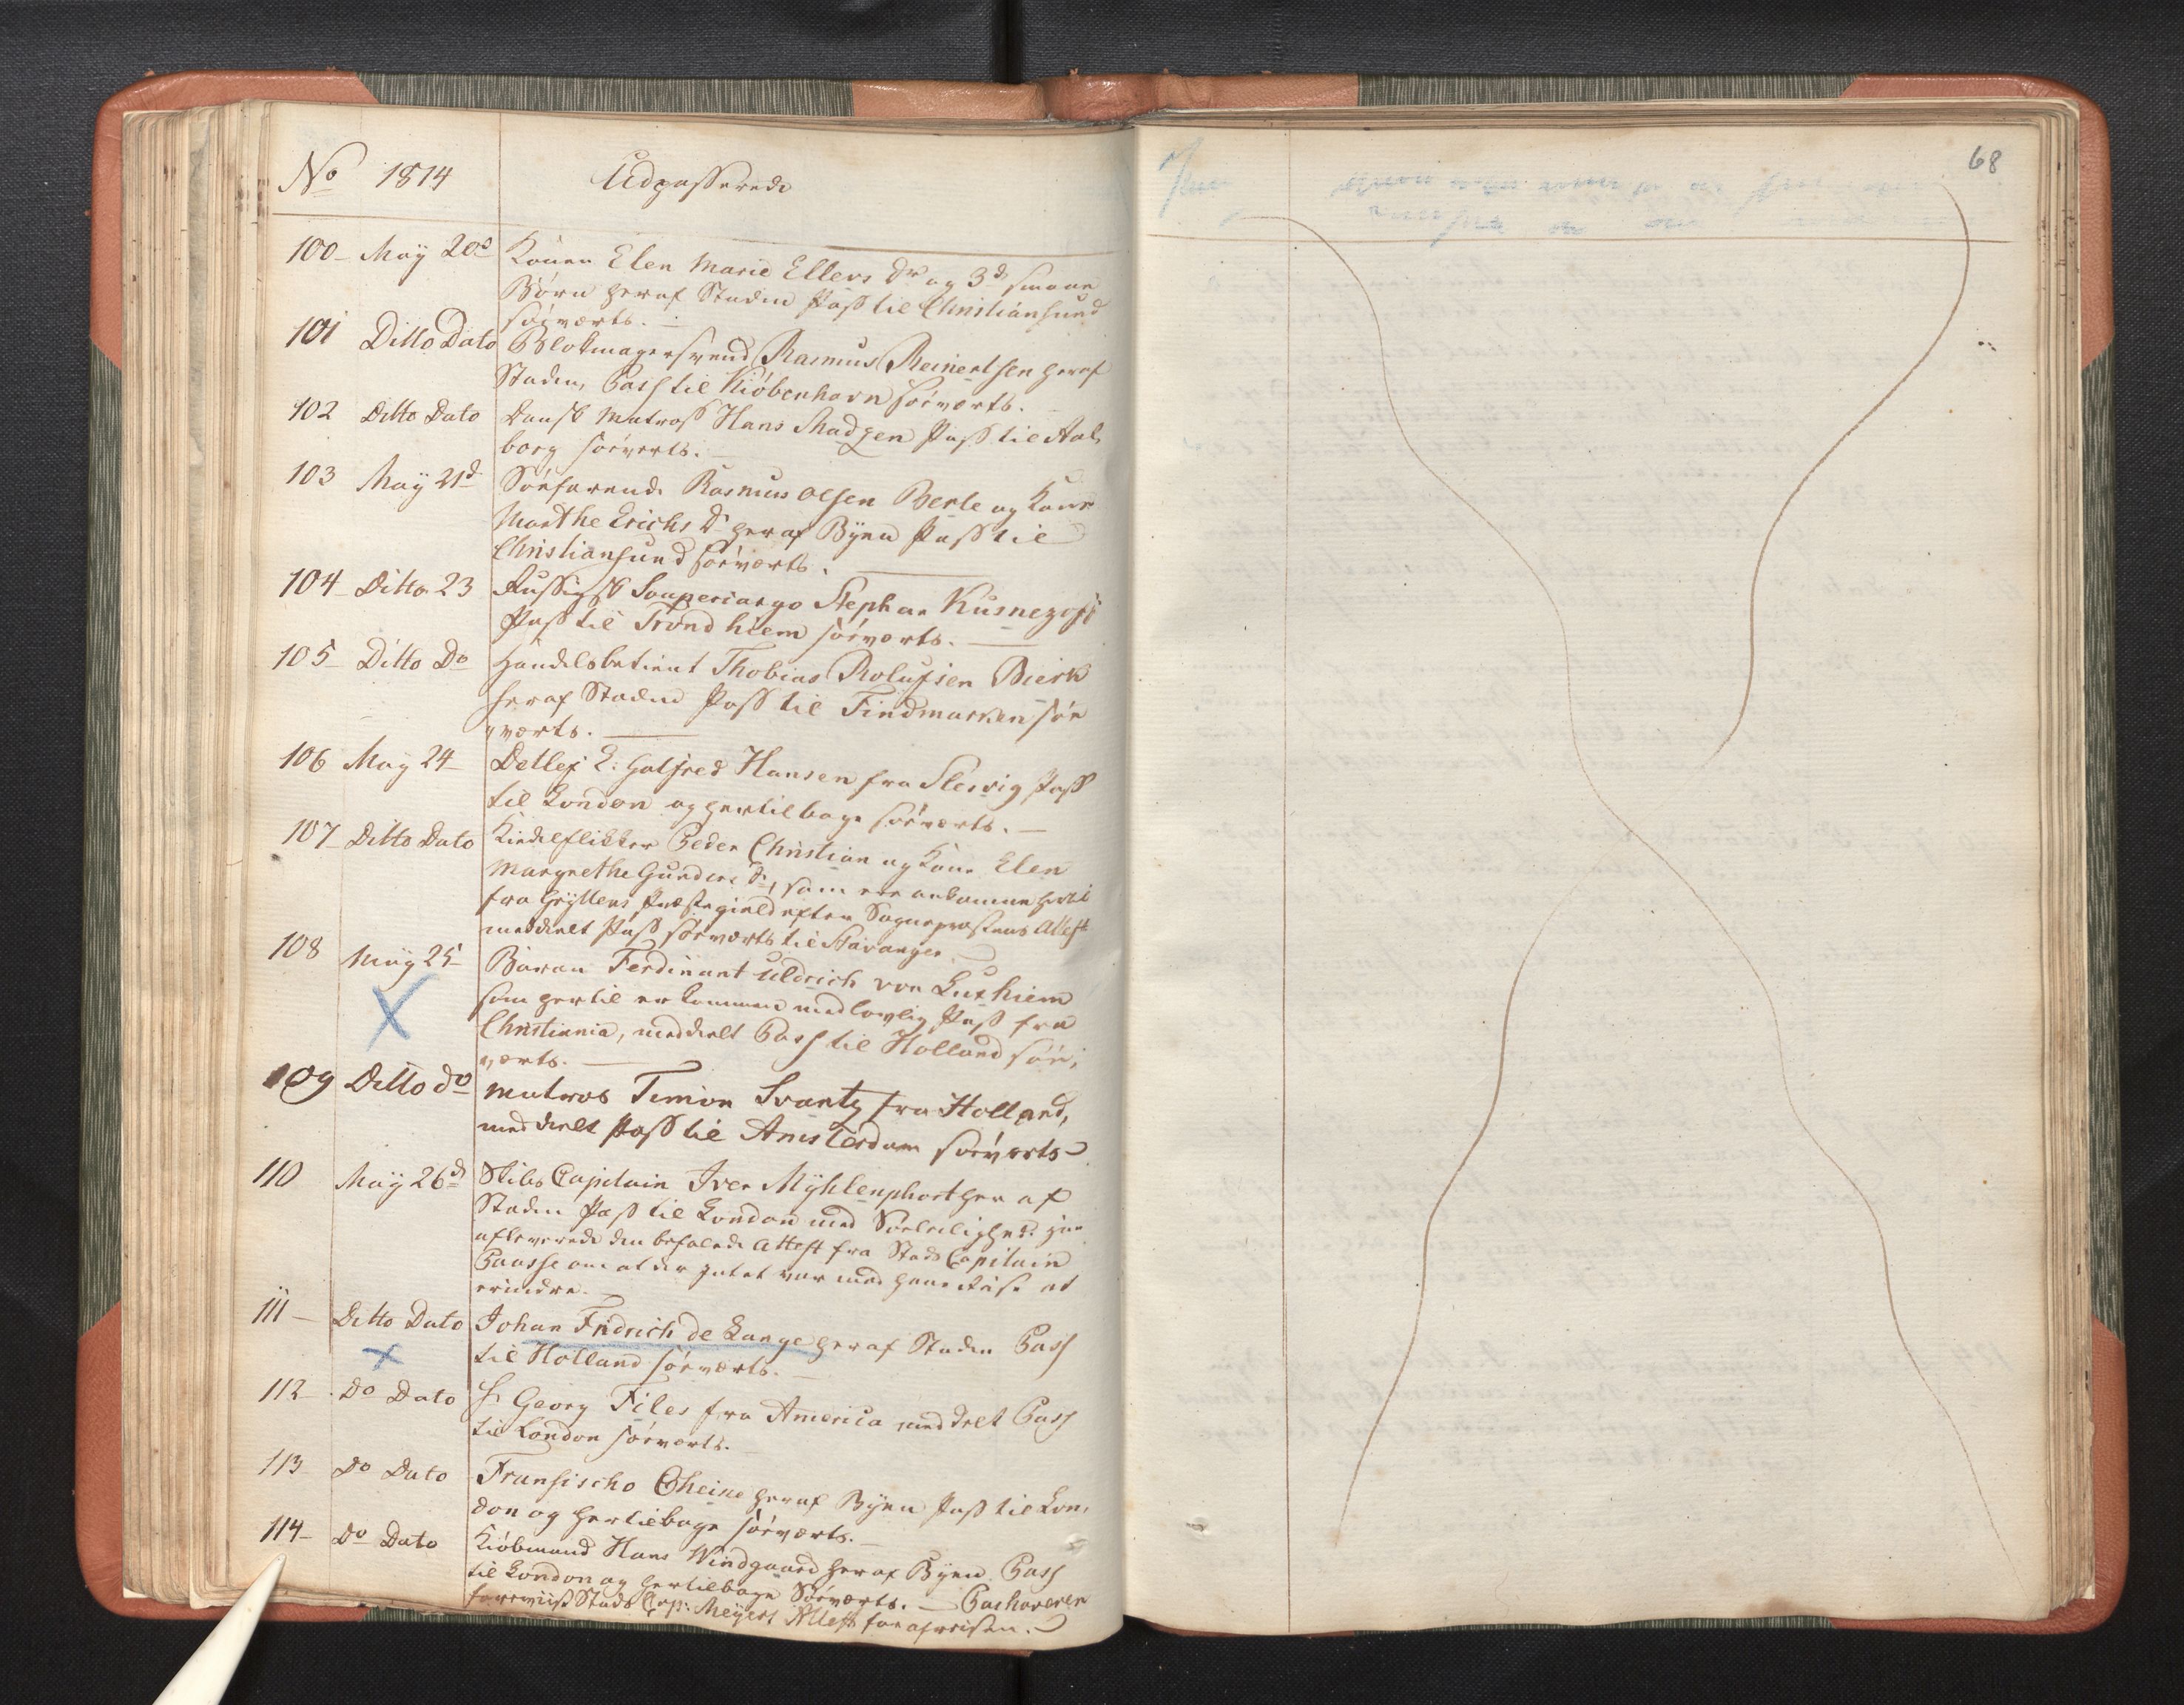 No 1814 Udpasserede
100 - Maÿ 20d Konen Elen Marie Ellers Dr og 3de smaae
Børn heraf Staden Pass til Christiansund
søeværts. -
101 Ditto Dato Blokmagersvend Rasmus Reinertsen heraf
Staden, Pass til Kiöbenhavn søeværts.
102 Ditto Dato Dansk Matros Hans Madsen Pass til Aal,
borg søeverts.
103 Maÿ 21d Søefarende Rasmus Olsen Berle og Kone
Marthe Erichs Dr heraf Bÿen Pass til
Christiansund søeværts.
104 - Ditto 23 Russisk Soupercargo Stephan Kusnezoff
Pass til Trondhiem søeværts.
105 - Ditto Do Handelsbetient Thobias Rolufsen Bierk
heraf Staden Pass til Findmarken søe
værts.
106 May 24 - Detlef E: Gotfred Hansen fra Slesvig Pass
til London og hertilbage søeværts. -
107 - Ditto Dato Kiedelflikker Peder Christian og Kone Elen
Margrethe Gunders Dr, som ere ankomne hertil
fra Præstegield efter Sognepræstens Attest
meddeelt Pass søeværts til Stavanger.
108 Maÿ 25 - Baron Ferdinant Uldrich von
som hertil er kommen med lovlig Pass fra
Christiania, meddeelt Pass til Holland søe,
værts.
109 Ditto do Matros Timon Svantz fra Holland,
meddeelt Pass til Amsterdam søeværts
110 Maÿ 26d Skibs Capitain Iver Mÿhlenphort her af
Staden Pass til London med Søeleilighed: han
afleverede den befalede Attest fra Stads Capitain
Paasche om at der intet var mod hans Reise at
erindre.
111 - Ditto Dato Johan Fridrich de Lange heraf Staden Pass
til Holland søeværts.
112 - Do Dato Georg Files fra America meddelt Pass
til London søeværts.
113 Do Dato Fransischo heraf Bÿen Pass til Lon,
don og hertilbage søeværts.
114 - Do Dato Kiöbmand Hans Windgaard heraf Bÿen Pass
til London og hertilbage Søeværts. - Pashaveren
foreviist Stads Cap: Meÿers Attest for afreisen.
68